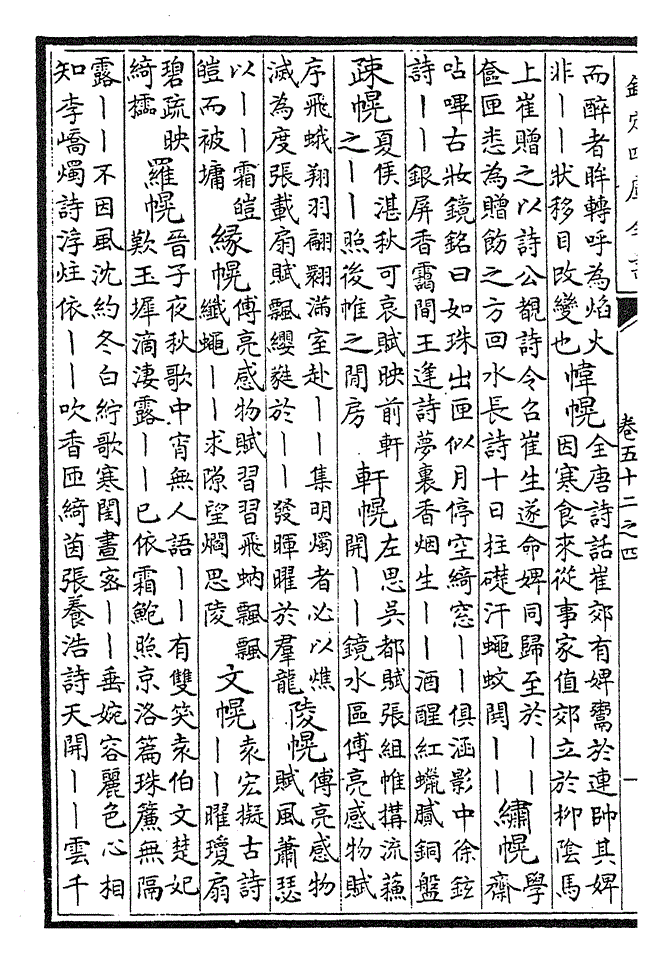 欽定四庫全書
卷五十二之四
一
而醉者眸轉呼為焰火
非丨丨狀移目改變也
幃幌
全唐詩話崔郊有婢鬻於連帥其婢
因寒食來從事家值郊立於柳陰馬
上崔贈之以詩公覩詩令召崔生遂命婢同歸至於丨丨
奩匣悉為贈飭之方回水長詩十日柱礎汗蠅蚊閧丨丨
繡幌
學
齋
呫嗶古妝鏡銘曰如珠出匣似月停空綺窓丨丨俱涵影中徐鉉
詩丨丨銀屏香靄間王逢詩夢裏香烟生丨丨酒醒紅蠟膩銅盤
疎幌
夏侯湛秋可哀賦映前軒
之丨丨照後帷之閒房
軒幌
左思吳都賦張組帷搆流蘓
開丨丨鏡水區傅亮感物賦
序飛蛾翔羽翩翾滿室赴丨丨集明燭者必以燋
滅為度張載扇賦飄纓蕤於丨丨發暉曜於羣龍
陵幌
傅亮感物
賦風蕭瑟
以丨丨霜皚
皚而被墉
緣幌
傅亮感物賦習習飛蚋飄飄
纖蠅丨丨求隙望爓思陵
文幌
袁宏擬古詩
丨丨曜瓊扇
碧疏映
綺櫺
羅幌
晉子夜秋歌中宵無人語丨丨有雙笑袁伯文楚妃
歎玉墀滴淒露丨丨已依霜鮑照京洛篇珠簾無隔
露丨丨不因風沈約冬白紵歌寒閨晝宻丨丨垂婉容麗色心相
知李嶠燭詩浮炷依丨丨吹香匝綺茵張養浩詩天開丨丨雲千